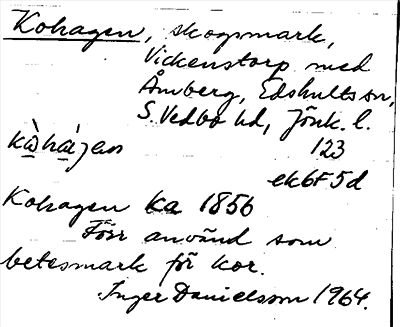 Kohagen, skogsmark,
Vickenstorp med
Åmberg, Edshults sn,
S. Vedbo hd, Jönk. l.
123
ek6F5d
Kohagen ka 1856
Förr använd som
betesmark för kor.
Inger Danielsson 1964.